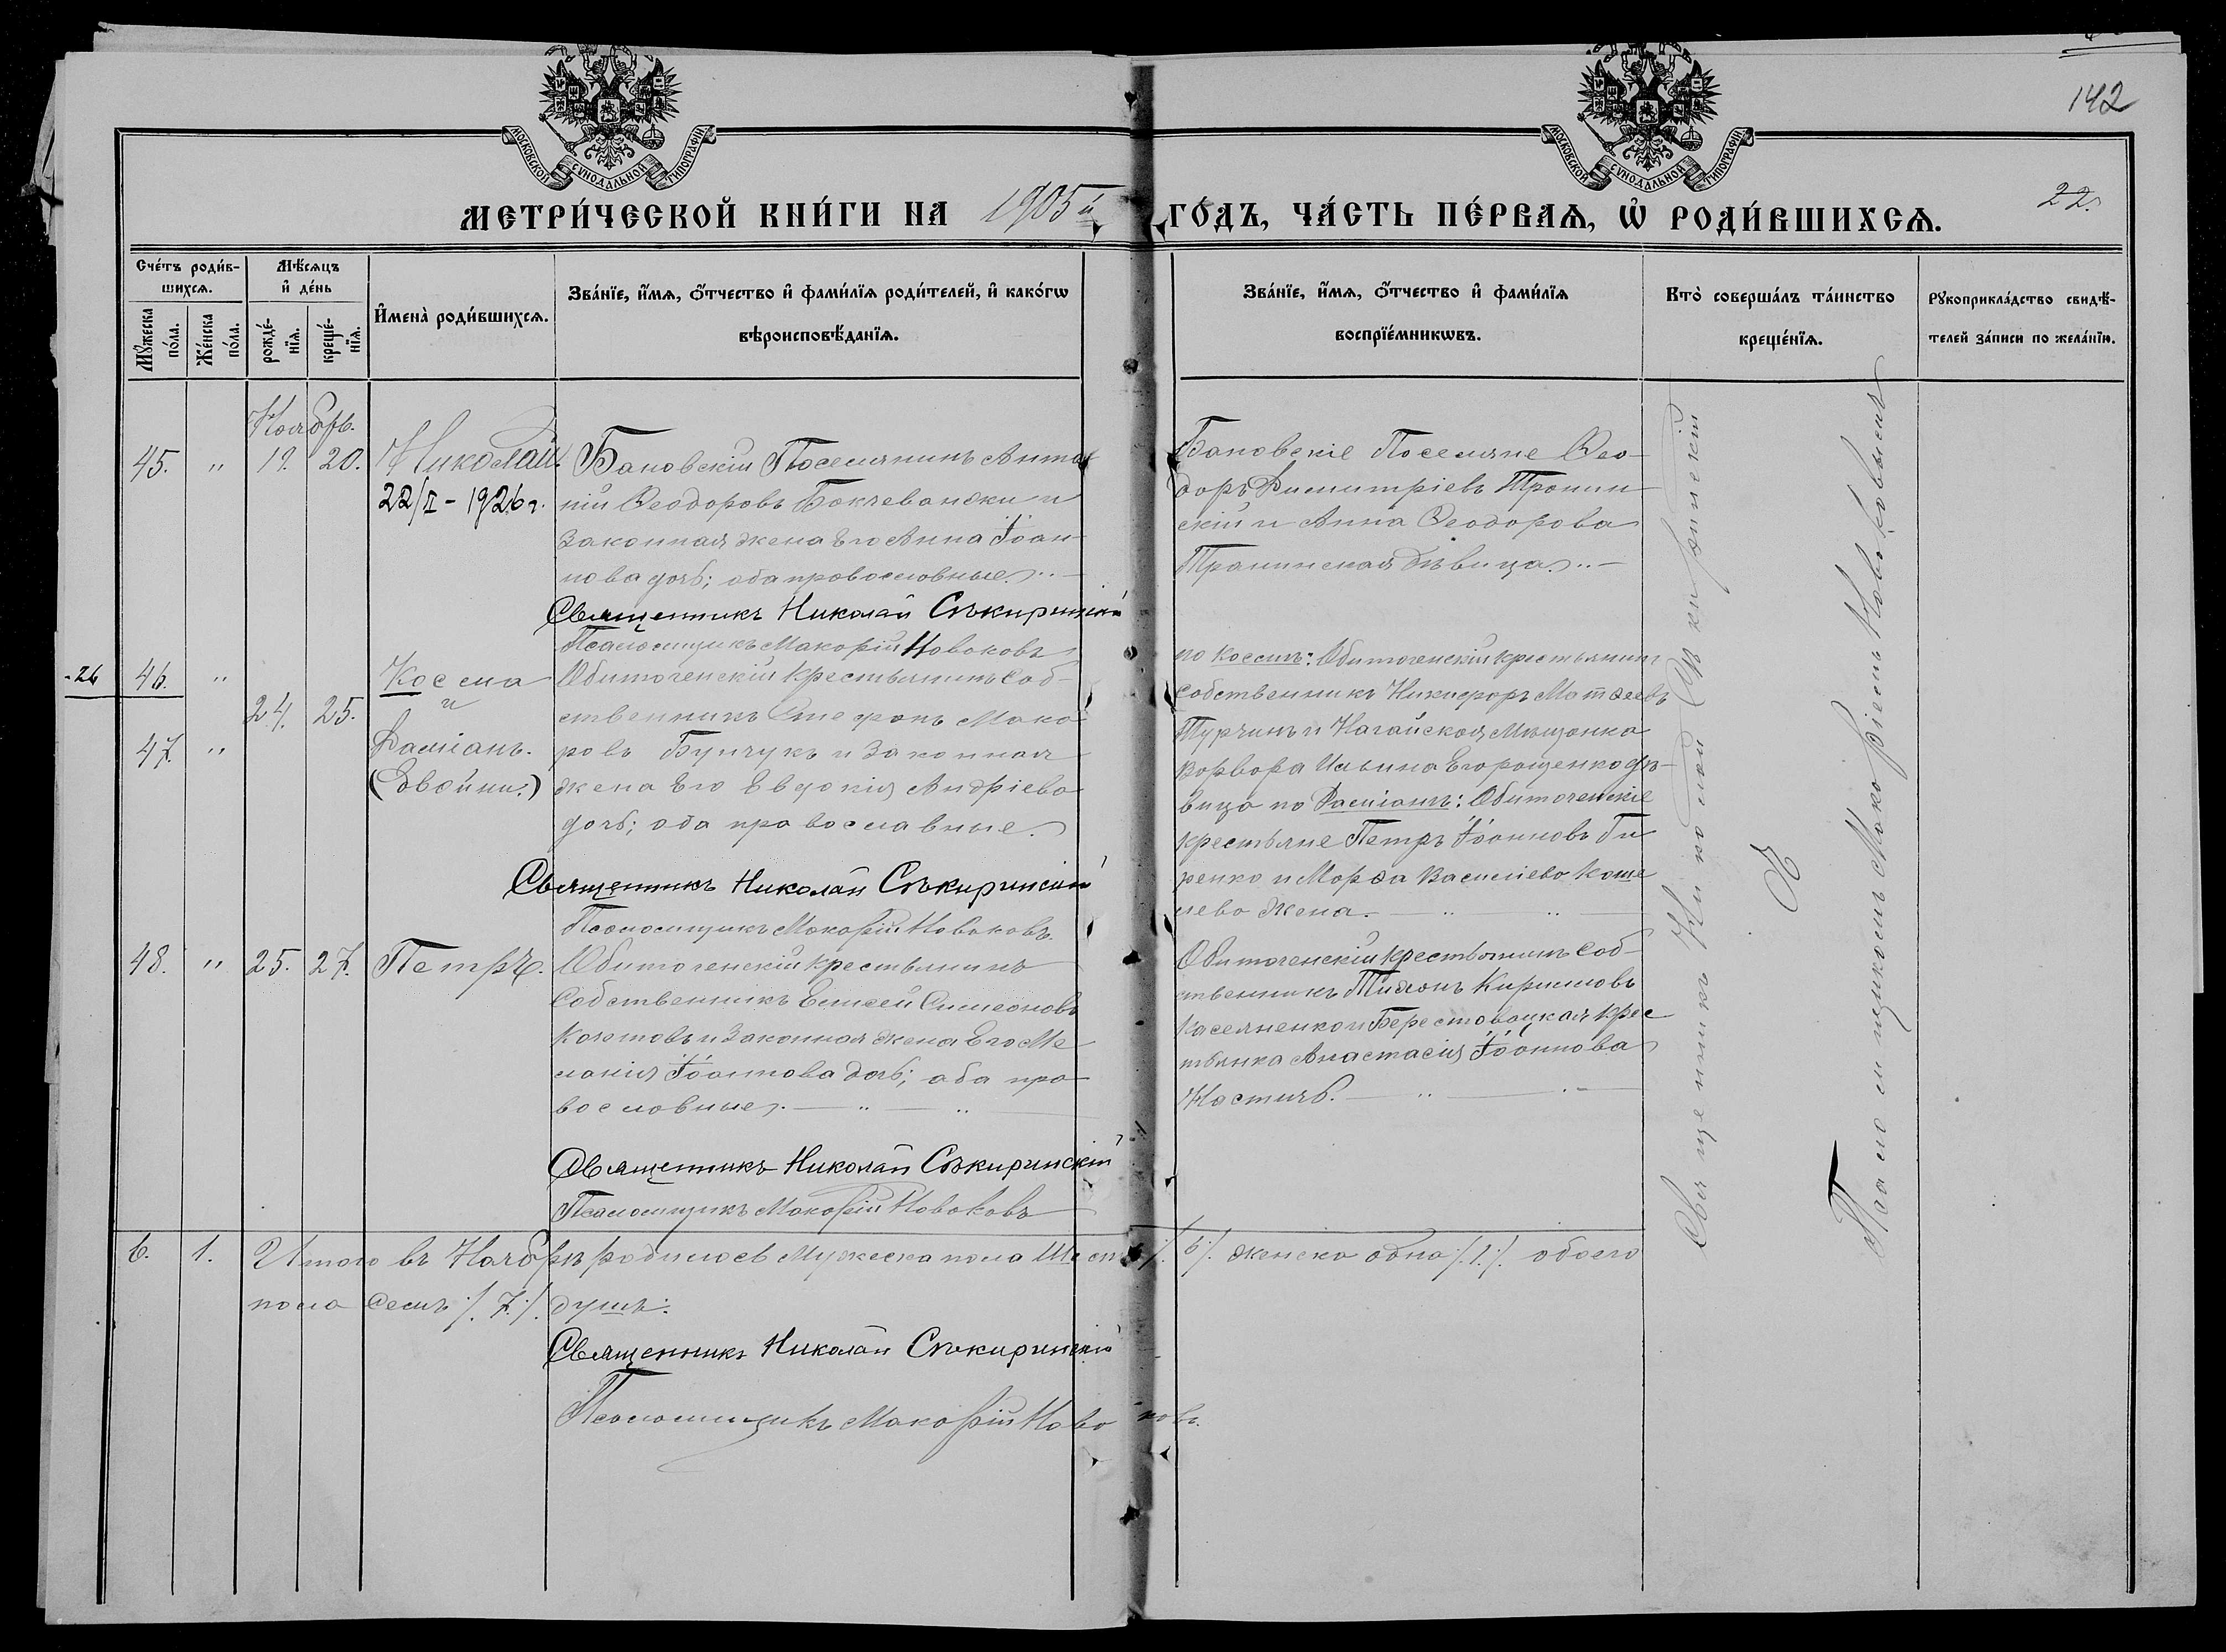 142
22.
МОСКОВСКОЙ СѴНОДАЛЬНОЙ ТИПОГРАФІИ
МОСКОВСКОЙ СѴНОДАЛЬНОЙ ТИПОГРАФІИ
МЕТРИ́ЧЕСКОЙ КНИ́ГИ НА 1905й ГО́ДЪ, ЧА́СТЬ ПЕ́РВАѦ, Ѡ҆ РОДИ́ВШИХСѦ.
Сче́тъ роди́в-
шихсѧ.
Мꙋ́жеска
по́ла.
Же́нска
по́ла.
Мѣ́сѧцъ
и҆ де́нь
рожде́-
нїѧ.
креще́-
нїѧ.
И҆мена̀ роди́вшихсѧ.
Зва́нїе, и҆́мѧ, ѻ҆́тчество и҆ фами́лїѧ роди́телей, и҆ како́гѡ
вѣроисповѣ́данїѧ.
Зва́нїе, и҆́мѧ, ѻ҆́тчество и҆ фами́лїѧ
воспрїе́мникѡвъ.
Кто̀ соверша́лъ та́инство
креще́нїѧ.
Рꙋкоприкла́дство свидѣ́-
телей за́писи по жела́нїю.
Ноябрь.
45. " 19. 20. Николай.
22/II - 1926 г.
Бановскій Поселянинъ Анто
ній Ѳеодоровъ Бокчевански и
Законная жена Его Анна Іоан-
нова дочь; оба провословные.
Священникъ Николай Сѣкиринскій
Псаломщикъ Макорій Новоковъ
Бановскіе Поселяне Ѳео-
доръ Димитріевъ Тронин
скій и Анна Ѳеодорова
Транинская дѣвица.
-26 46. "
24. 25.
47. "
Косма
и
Даміанъ.
(Двойни.)
Обиточенскій Крестьянинъ Соб-
ственникъ Стефонъ Мако
ровъ Бунчукъ и Законная
жена Его Евдокія Андріева
дочь; оба православные.
Священникъ Николай Сѣкиринскій
Псаломщикъ Макорій Новоковъ.
по Коссмѣ: Обиточенскій крестьянинъ
собственникъ Никифоръ Матѳеевъ
Турчинъ и Нагайская Мѣщанка
Ворвора Ильина Егорощенко дѣ-
вица по Даміанѣ: Обиточенскіе
крестьяне Петръ Іоанновъ Ги
ренко и Морѳа Василіева Коше
лево жена.
48. " 25. 27. Петръ.
Обиточенскій крестьянинъ
Собственникъ Елисей Симеоновъ
и Законная жена Его Ме
ланія Іоаннова дочь; оба про
вословные.
Священникъ Николай Сѣкиринскій
Псаломщикъ Макорій Новоковъ
Обиточенскій крестьянинъ Соб-
ственникъ Кирилловъ
Каселненко и Берестовацкая крес
тьянка Анастасія Іоаннова
Священникъ Николай Сѣкиринскій
Съ
Псаломщикомъ Макоріемъ Новоковымъ
6. 1. Итого въ Ноябрѣ родилось Мужеска пола Шесть /.6./. женска одна /.1./. обоего
пола Семь /.7./. душъ.
Священникъ Николай Сѣкиринскій
Псаломщикъ Макорій Новоковъ.